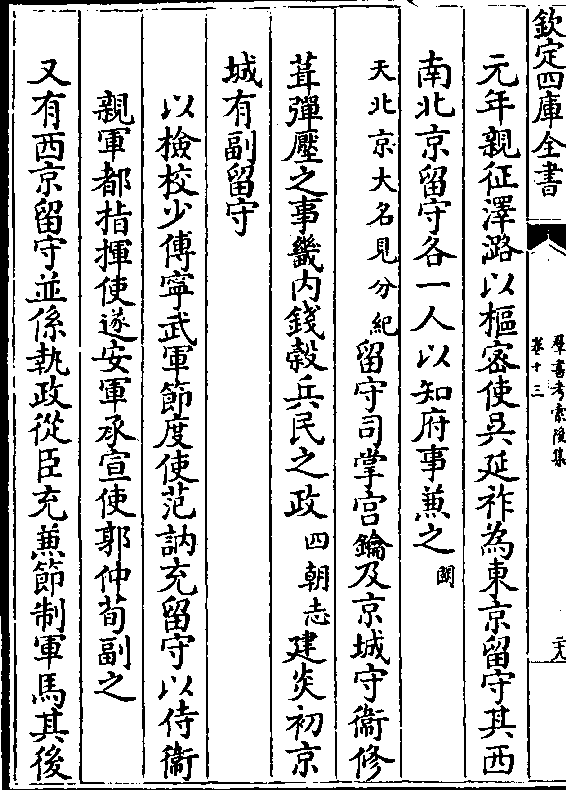 欽定四庫全書
羣書考索後集
卷十三
二六
元年親征澤潞以樞宻使吳延祚為東京留守其西
南北京留守各一人以知府事兼之闕
天北京大名見分紀留守司掌宫鑰及京城守衞修
葺彈壓之事畿内錢榖兵民之政四朝志建炎初京
城有副留守
以檢校少傅寧武軍節度使范訥充留守以侍衞
親軍都指揮使遂安軍承宣使郭仲荀副之
又有西京留守並係執政從臣充兼節制軍馬其後